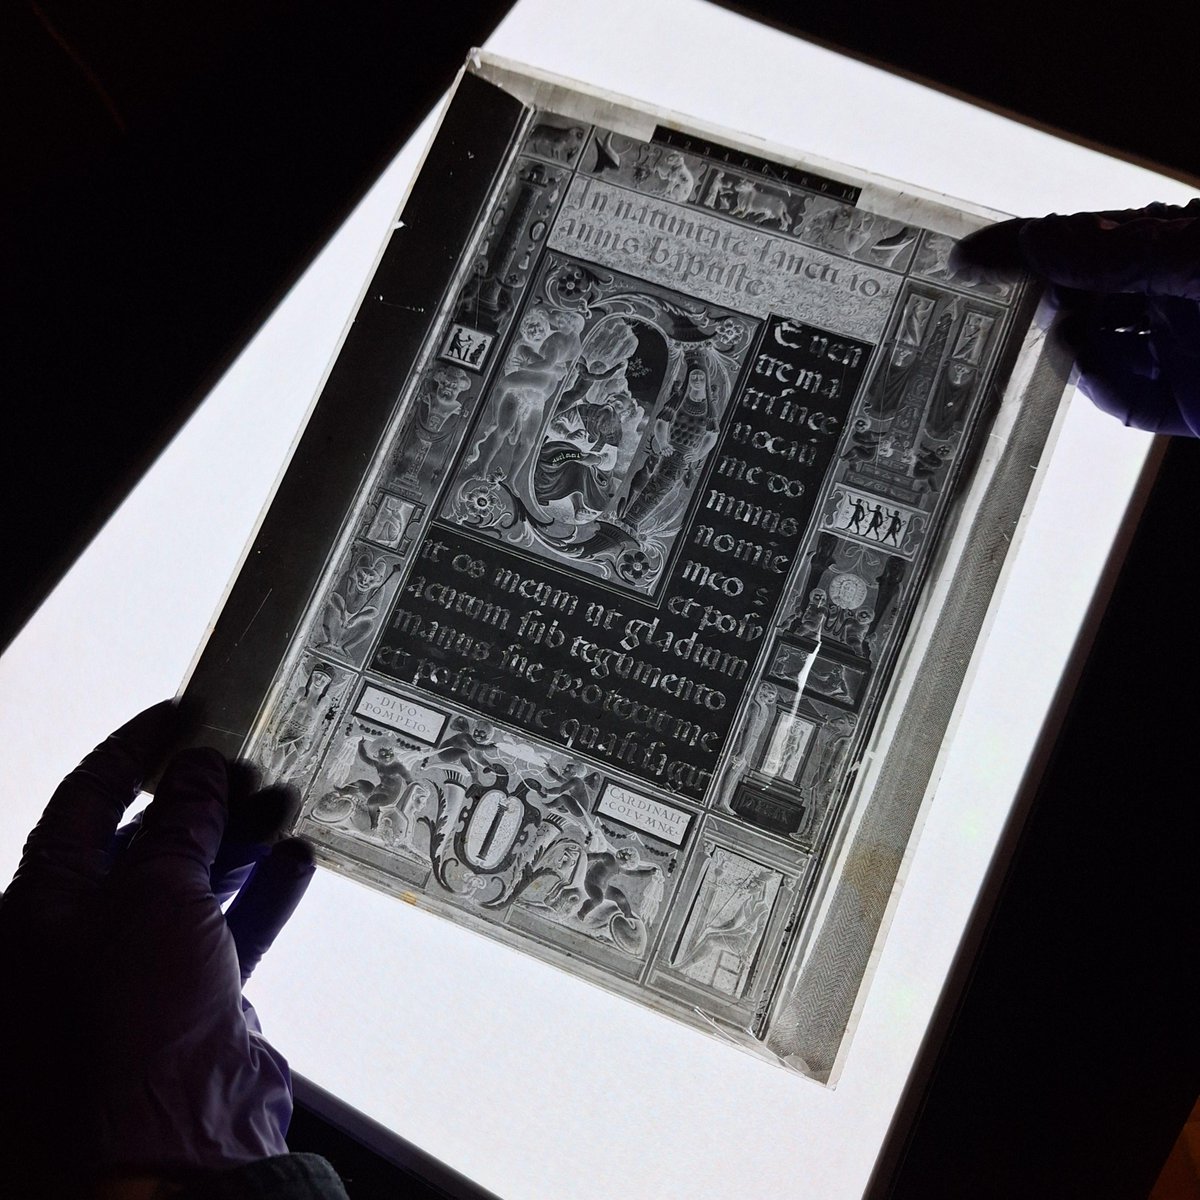 1 2 3 4 5 6 7 8 9 10
In natiuitate sancti io
annis baptiste
E uen
tre ma
tris mee
uocaui
me do
minus
nomie
meo :
et posu
it os meum ut gladium
acutum sub tegumento
manus sue protexit me
et posuit me quasi sagit
·DIVO·
POMPEIO·
CARDINALI·
·COLVMNÆ·